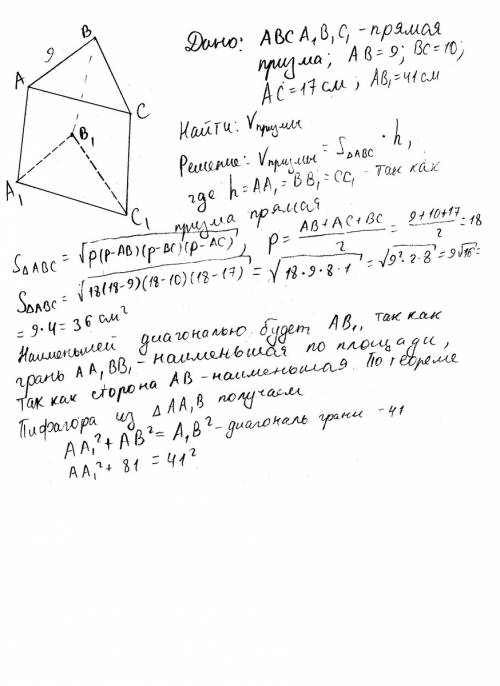 9
B
A
C
B₁
A₁
C₁
Дано: ABCA₁B₁C₁ - прямая
призма; AB = 9; BC = 10;
AC = 17 см; AB₁ = 41 см
Найти: Vпризмы
Решение: Vпризмы = S△ABC · h,
где h = AA₁ = BB₁ = CC₁ - так как
призма прямая
S△ABC = √(p(p-AB)(p-BC)(p-AC)), p = (AB+AC+BC)/2 = (9+10+17)/2 = 18
S△ABC = √(18(18-9)(18-10)(18-17)) = √(18·9·8·1) = √(9²·2·8) = 9√16 =
= 9·4 = 36 см²
Наименьшей диагональю будет AB₁, так как
грань AA₁BB₁ - наименьшая по площади,
так как сторона AB - наименьшая. По теореме
Пифагора из △AA₁B получаем
AA₁² + AB² = A₁B² - диагональ грани - 41
AA₁² + 81 = 41²